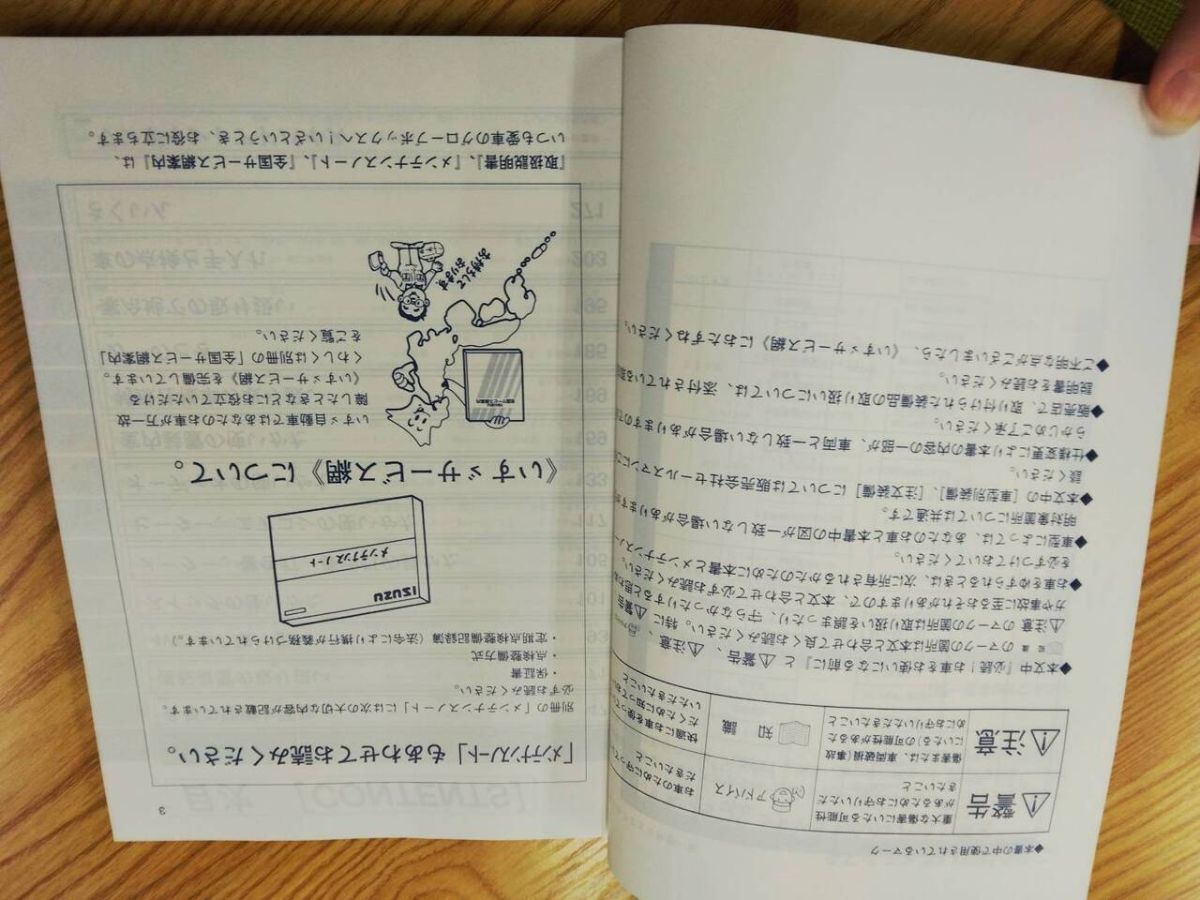 ◆本書の中で使用されているマーク
⚠警告
重大な傷害にいたる可能性
があるためにお守りいただ
きたいこと
アドバイス
お車のために守って
だきたいこと
⚠注意
傷害または、車両破損(事故
にいたる)の可能性がある
ためにお守りいただきたいこと
知 識
快適にお車を使って
だくために知ってお
いただきたいこと
◆本文中「必読!お車をお使いになる前に」と⚠警告、⚠注意、
のマークの箇所は本文と合わせて良くお読みください。特に⚠警告
⚠注意のマークの箇所は取り扱いを誤まったり、守らなかったりすると思わぬ
力や事故に至るおそれがありますので、本文と合わせて必ずお読みください。
◆お車をゆずられるときは、次に所有されるかたのために本書とメンテナンスノー
を必ずつけておいてください。
◆車型によっては、あなたのお車と本書中の図が一致しない場合がありますが
明対象箇所については共通です。
◆本文中の[車型別装備]、[注文装備]については販売会社セールスマンにご
談ください。
◆仕様変更により本書の内容の一部が、車両と一致しない場合がありますので
らかじめご了承ください。
◆販売店で、取り付けられた装備品の取り扱いについては、添付されている取
説明書をお読みください。
◆ご不明な点がございましたら、《いすゞサービス網》におたずねください。
3
「メンテナンスノート」もあわせてお読みください。
別冊の「メンテナンスノート」には次の大切な内容が記載されています。
必ずお読みください。
・保証書
・点検整備方式
・定期点検整備記録簿(法令により携行が義務づけられています。)
ISUZU
メンテナンスノート
《いすゞサービス網》について。
いすゞ自動車ではあなたのお車が万一故
障したときなどにお役立ていただける
《いすゞサービス網》を完備しています。
くわしくは別冊の「全国サービス網案内」
をご覧ください。
お待ちして
おります
「取扱説明書」、「メンテナンスノート」、「全国サービス網案内」は、
いつも愛車のグローブボックスへ!いざというとき、お役に立ちます。